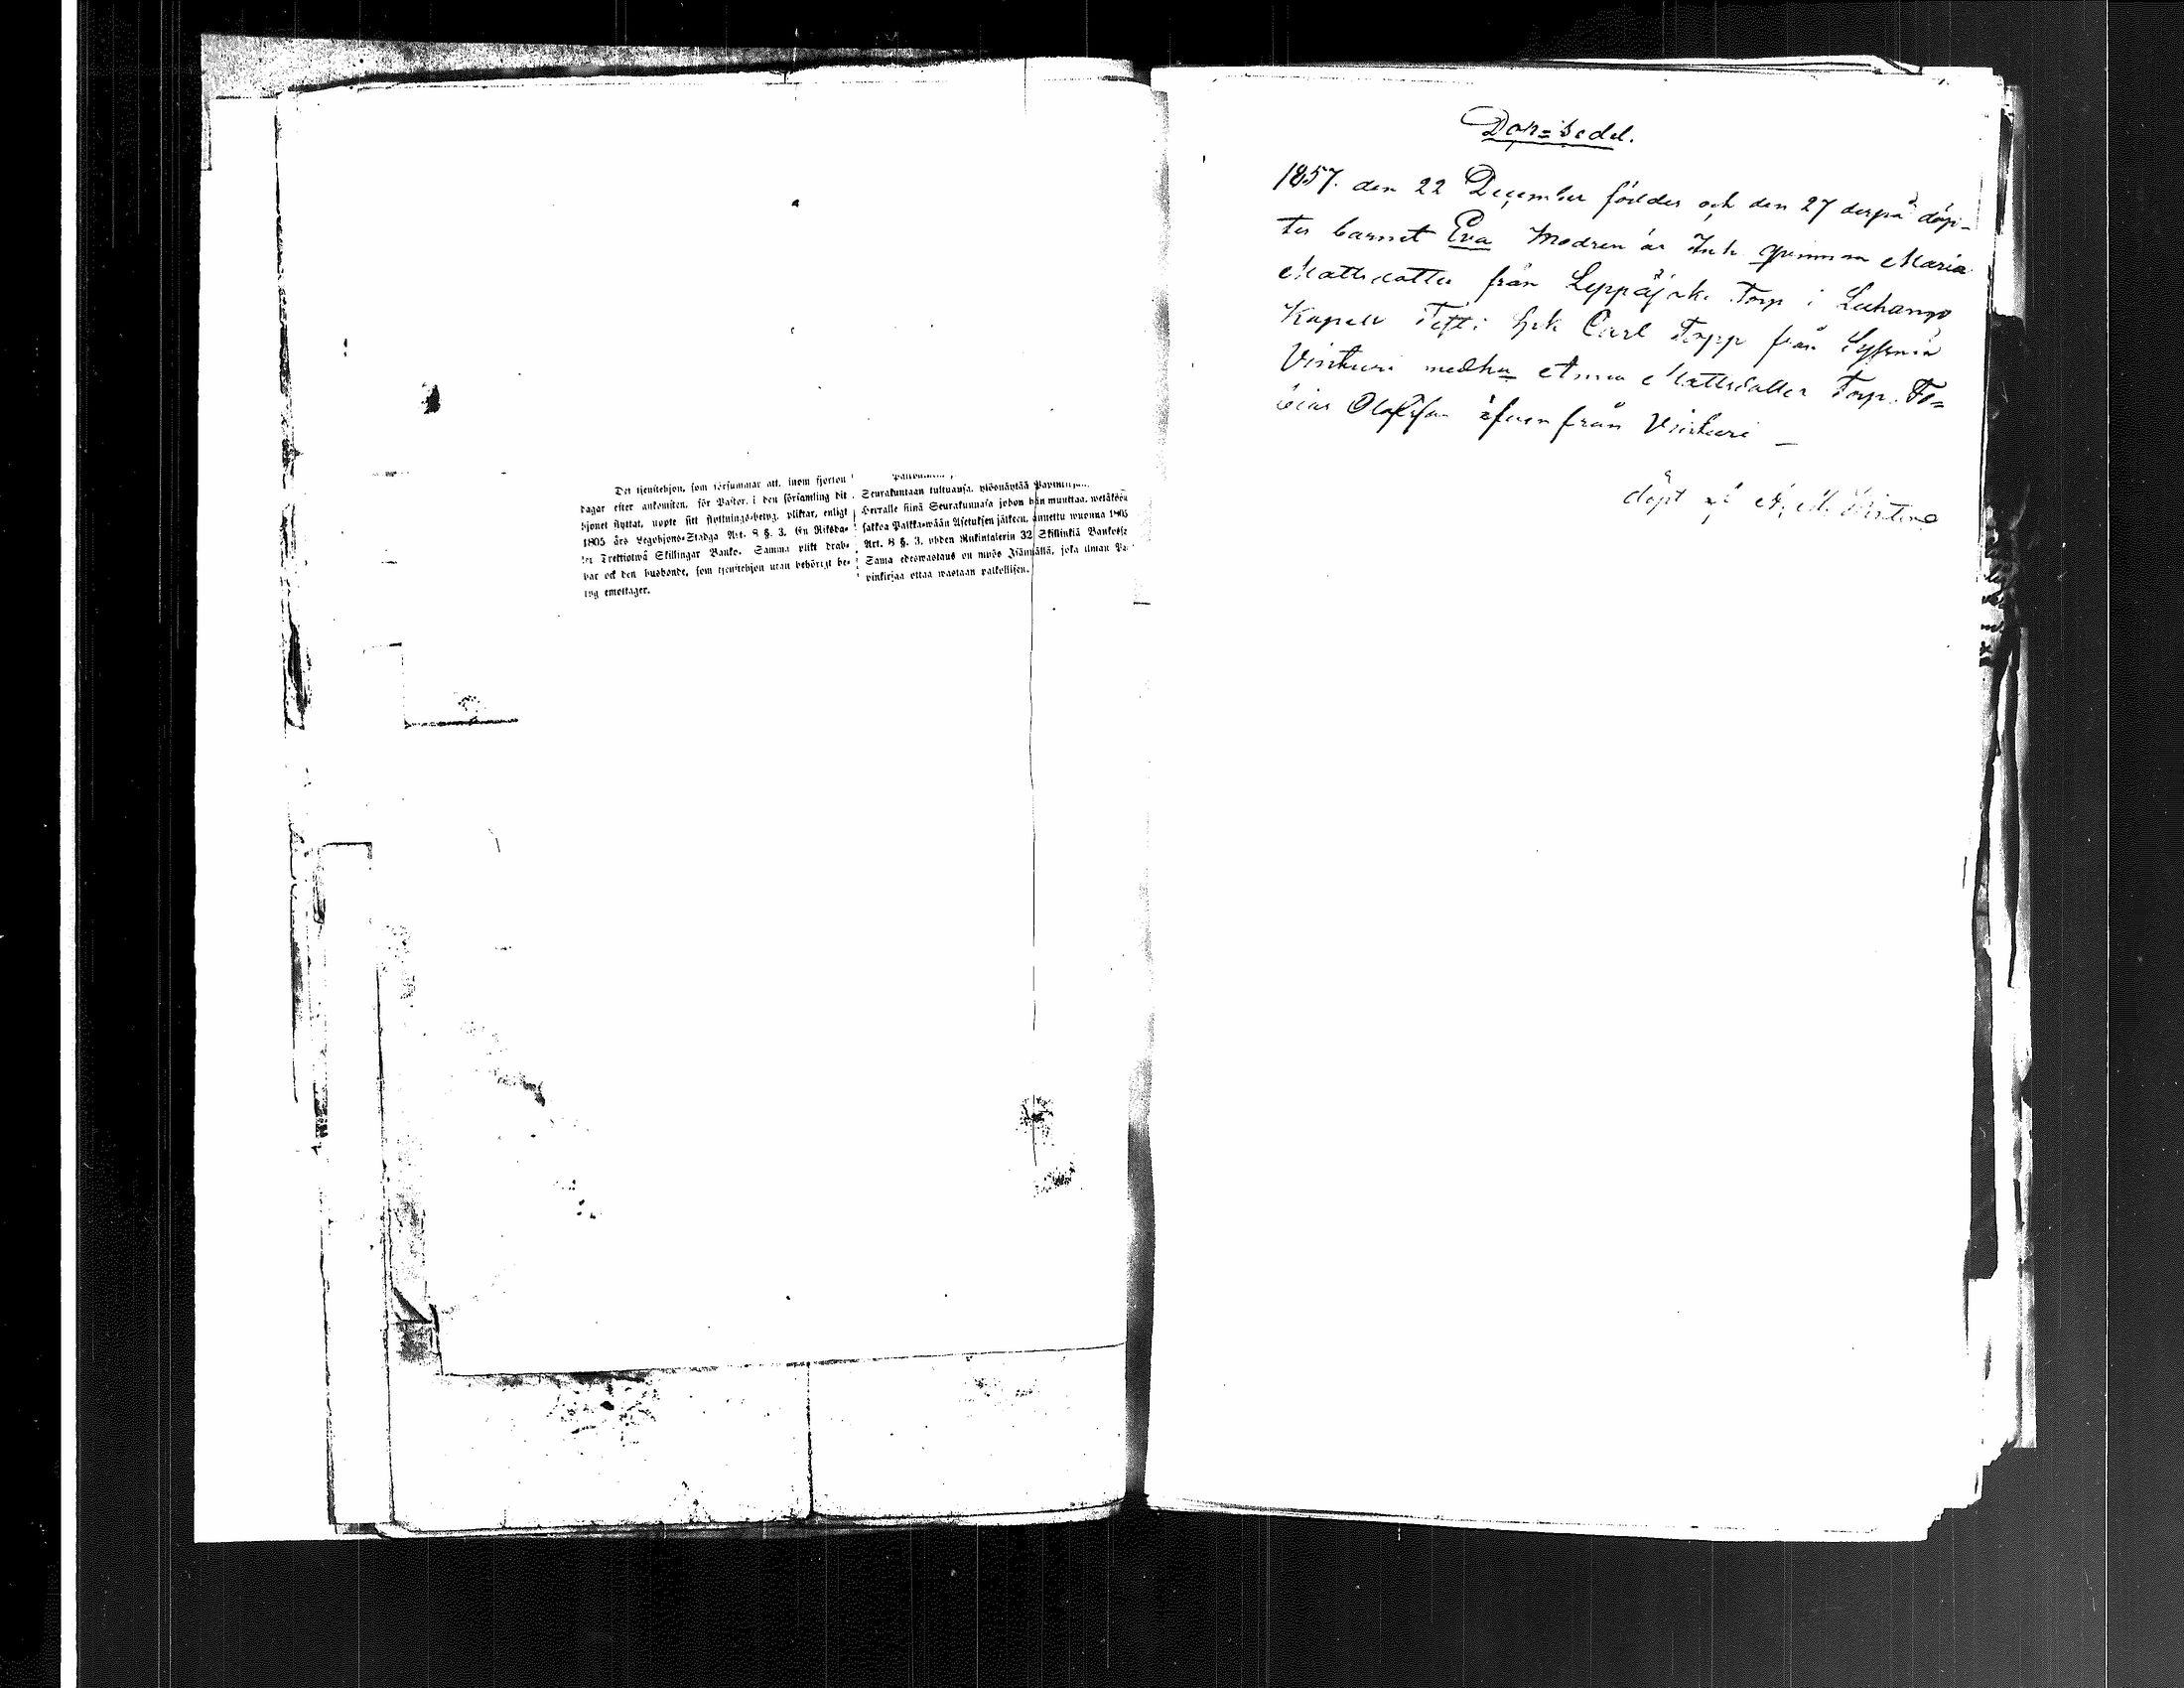 Det tjenstehjon, som försummar att, inom fjorton
dagar efter ankomsten, för Pastor, i den församling dit
hjonet flyttat, uppte sitt flyttnings-betyg, pliktar, enligt
1805 års Legohjons-Stadga Art. 8 §. 3, En Riksda-
ler Trettiotwå Skillingar Banko. Samma plikt drab-
bar ock den husbonde, som tjenstehjon utan behörigt be-
tyg emottager.
Seurakuntaan tultuansa, ylösnäytää
Herralle siinä Seurakunnasa johon hän muuttaa, wetäköön
sakkoa Palkka-wään Asetuksen jälkeen, annettu wuonna 1805
Art. 8 §. 3, yhden Riikintalerin 32 Skillinkiä Bankosse
Sama edeswastaus on myös Isännällä, joka ilman Pa-
pinkirjaa ottaa wastaan palkollisen.
Dop=Sedel.
1857. den 22 December föddes och den 27 derpå döp-
tes barnet Eva Modren är Inh. qvinnan Maria
Mattsdotter från Leppäjärki Torp i Luhango
Kapell Test: Carl Topp från Syssmä
Virturi med hu= Anna Mattsdotter Torp. To=
bias Olofsson äfven från Virturi —
döpt af